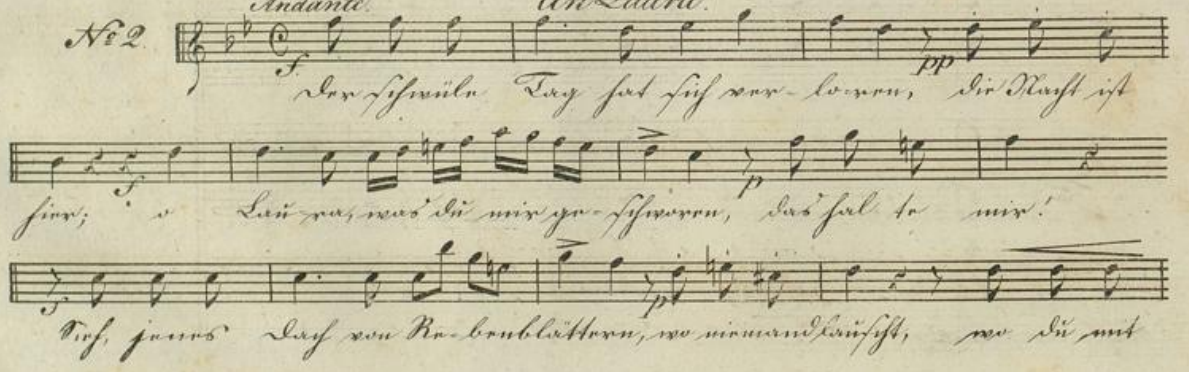 Andante. An Laura.
No 2.
f. pp
Der schwüle Tag hat sich ver- lo-ren, die Nacht ist
f p
hier; o Lau ra, was du mir ge-schworen, das hal te mir!
f p
Sieh, jenes Dach von Re-benblättern, wo niemand lauscht, wo du mit